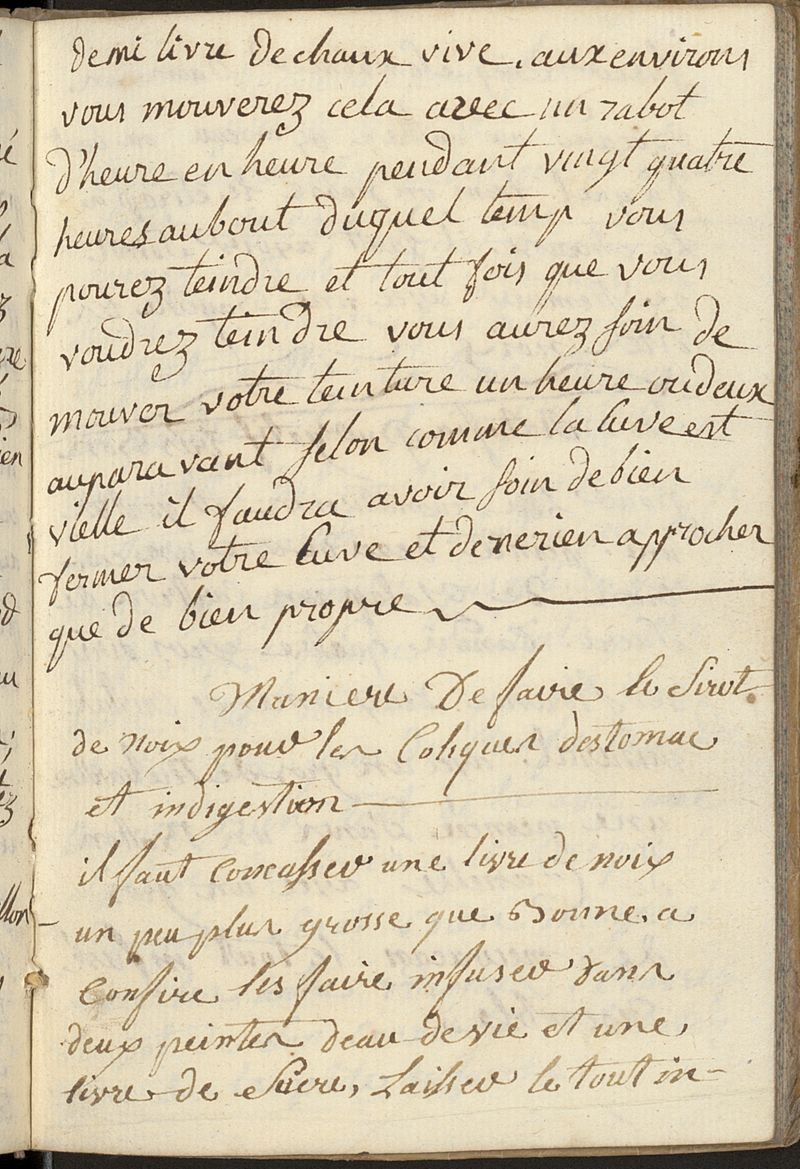 demi livre de chaux vive, aux environs
vous mouverez cela avec un rabot
d'heure en heure pendant vingt quatre
heures au bout duquel temp vous
pourez teindre et tout fois que vous
voudrez teindre vous aurez soin de
mouver votre teinture un heure ou deux
auparavant selon comme la Cuve est
vielle il faudra avoir soin de bien
fermer votre Cuve et de ne rien approcher
que de bien propre
Maniere De faire le Sirot
de noix pour les Coliques destomac
et indigestion
il faut Concasser une livre de noix
un peu plus grosse que Bonne a
Confire les faire infuser dans
deux peintes deau de vie et une
livre de Sucre, Laisser le tout in-